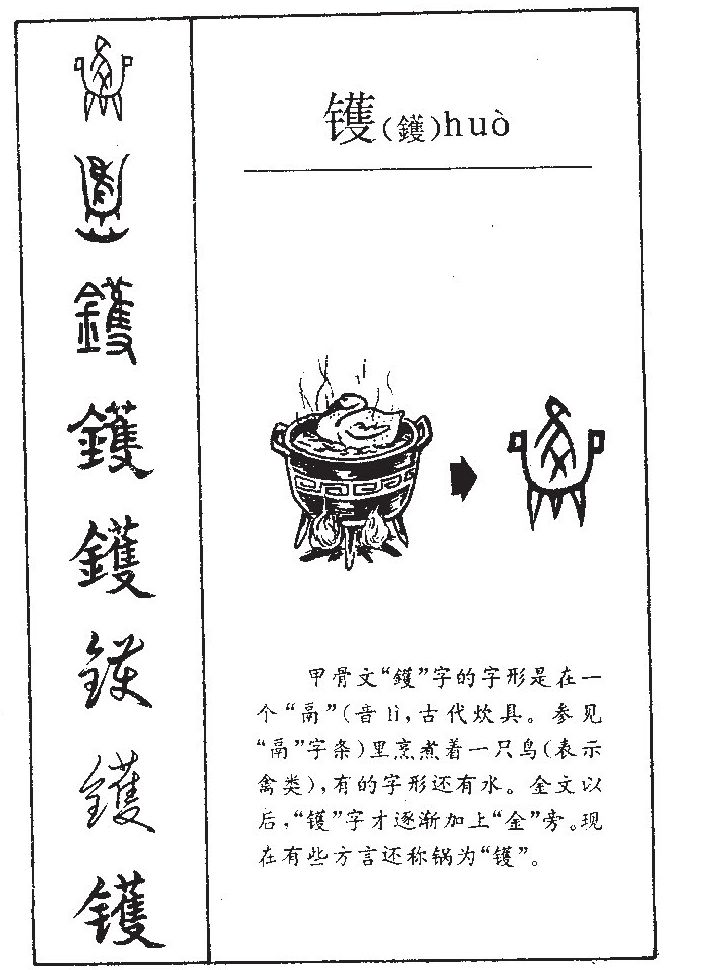 镬(鑊)huò
甲骨文“鑊”字的字形是在一
个“鬲”(音lì,古代炊具。参见
“鬲”字条)里烹煮着一只鸟(表示
禽类),有的字形还有水。金文以
后,“镬”字才逐渐加上“金”旁。现
在有些方言还称锅为“镬”。
鑊
鑊
鑊
镬
镬